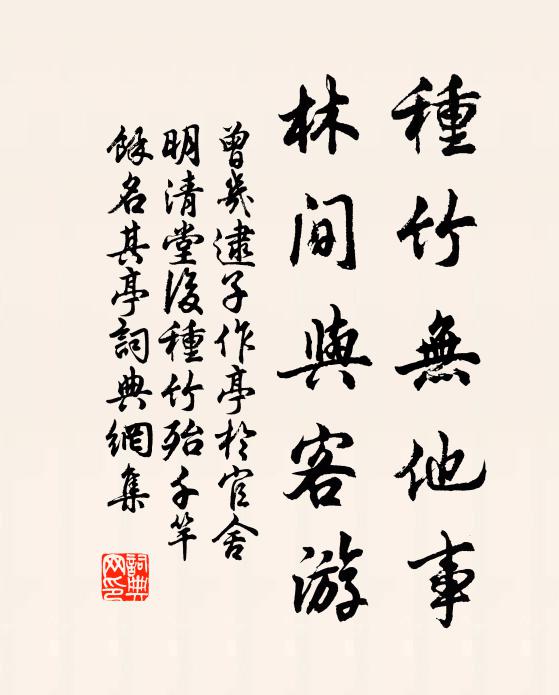 種竹無他事
林間與客游
曾幾逮子作亭於官舍
明清堂後種竹殆千竿
餘名其亭詞典網集
詞典
网印